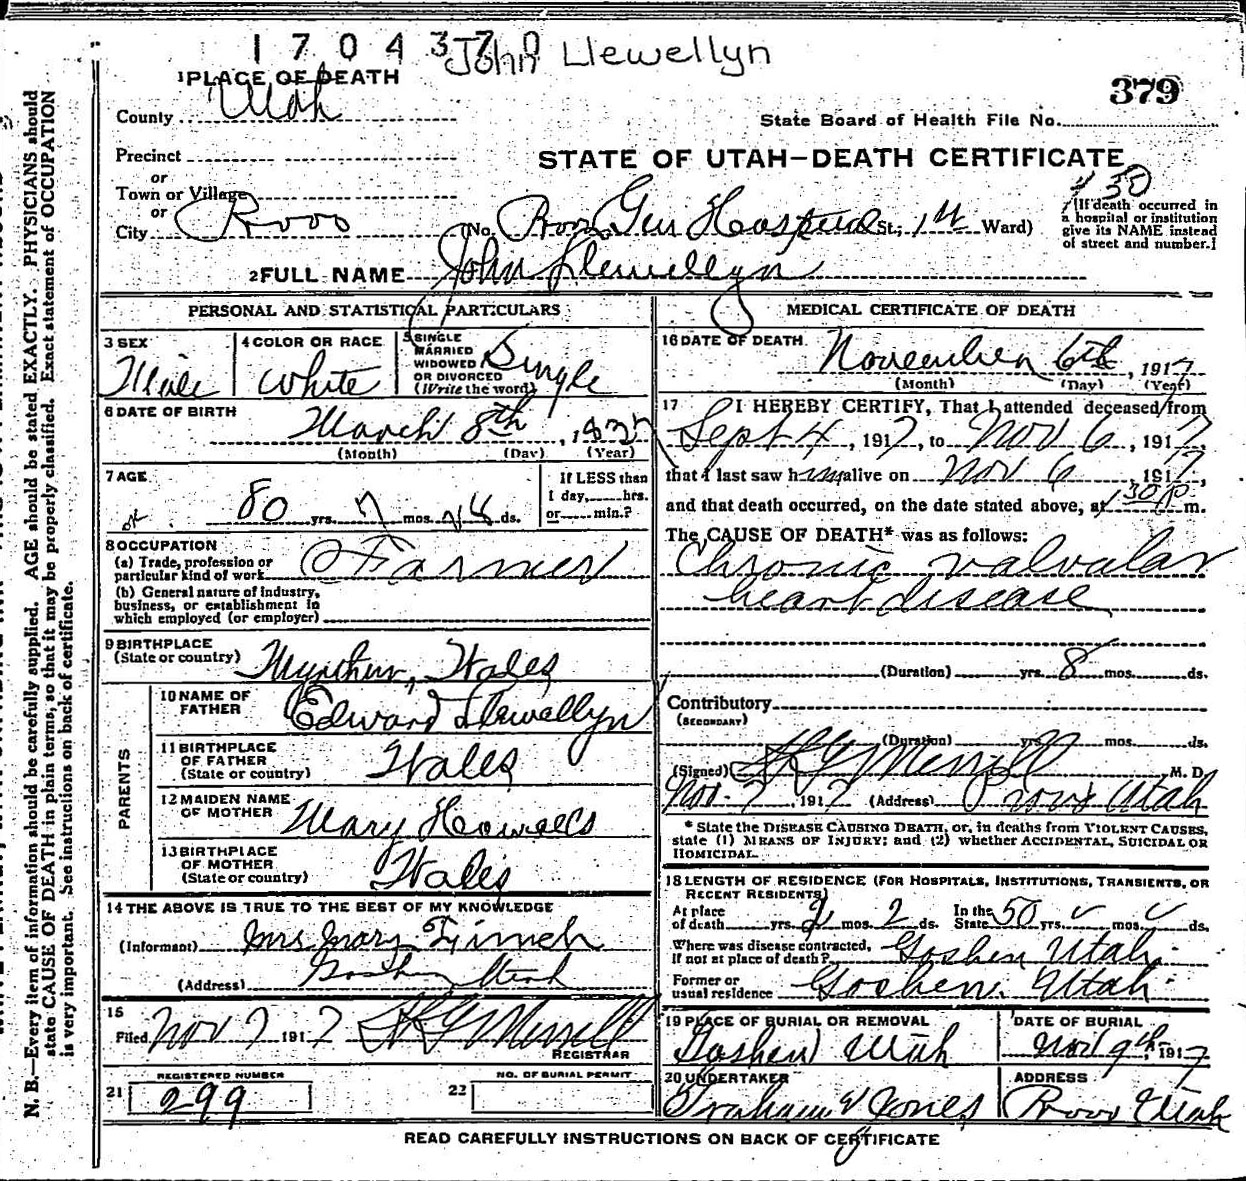 1704370 John Llewellyn
1 PLACE OF DEATH
379
County Utah
State Board of Health File No.
Precinct
STATE OF UTAH—DEATH CERTIFICATE
or
Town or Village
or
City Provo (No. Provo Gen Hospital St.; 1st Ward)
[If death occurred in
a hospital or institution
give its NAME instead
of street and number.]
2 FULL NAME John Llewellyn
PERSONAL AND STATISTICAL PARTICULARS
3 SEX
Male
4 COLOR OR RACE
White
5 SINGLE
MARRIED
WIDOWED
OR DIVORCED
(Write the word)
Single
6 DATE OF BIRTH
March 8th, 1837
(Month) (Day) (Year)
7 AGE
80 yrs. 7 mos. ds.
If LESS than
1 day, hrs.
or min.?
8 OCCUPATION
(a) Trade, profession or
particular kind of work Farmer
(b) General nature of industry,
business, or establishment in
which employed (or employer)
9 BIRTHPLACE
(State or country) Wales
PARENTS
10 NAME OF
FATHER
Edward Llewellyn
11 BIRTHPLACE
OF FATHER
(State or country)
Wales
12 MAIDEN NAME
OF MOTHER
Mary Howells
13 BIRTHPLACE
OF MOTHER
(State or country)
Wales
14 THE ABOVE IS TRUE TO THE BEST OF MY KNOWLEDGE
(Informant) Mrs Mary Finch
(Address) Goshen Utah
15
Filed Nov 7 1917
REGISTRAR
REGISTERED NUMBER
21 299
NO. OF BURIAL PERMIT
22
MEDICAL CERTIFICATE OF DEATH
16 DATE OF DEATH
November 6th, 1917
(Month) (Day) (Year)
17 I HEREBY CERTIFY, That I attended deceased from
Sept 4, 1917, to Nov 6, 1917,
that I last saw him alive on Nov 6 1917,
and that death occurred, on the date stated above, at 1 30 P m.
The CAUSE OF DEATH* was as follows:
Chronic valvular
heart disease
(Duration) yrs. 8 mos. ds.
Contributory
(SECONDARY)
(Duration) yrs. mos. ds.
(Signed) Merrill M. D.
Nov. 7, 1917 (Address) Provo Utah
* State the DISEASE CAUSING DEATH, or, in deaths from VIOLENT CAUSES,
state (1) MEANS OF INJURY; and (2) whether ACCIDENTAL, SUICIDAL OR
HOMICIDAL.
18 LENGTH OF RESIDENCE (FOR HOSPITALS, INSTITUTIONS, TRANSIENTS, OR
RECENT RESIDENTS)
At place
of death yrs. 2 mos. 2 ds.
In the
State 50 yrs. mos. ds.
Where was disease contracted,
If not at place of death? Goshen Utah
Former or
usual residence Goshen, Utah
19 PLACE OF BURIAL OR REMOVAL
Goshen Utah
DATE OF BURIAL
Nov 9th, 1917
20 UNDERTAKER
Graham & Jones
ADDRESS
Provo Utah
READ CAREFULLY INSTRUCTIONS ON BACK OF CERTIFICATE
N. B.—Every item of information should be carefully supplied. AGE should be stated EXACTLY. PHYSICIANS should
state CAUSE OF DEATH in plain terms, so that it may be properly classified. Exact statement of OCCUPATION
is very important. See instructions on back of certificate.